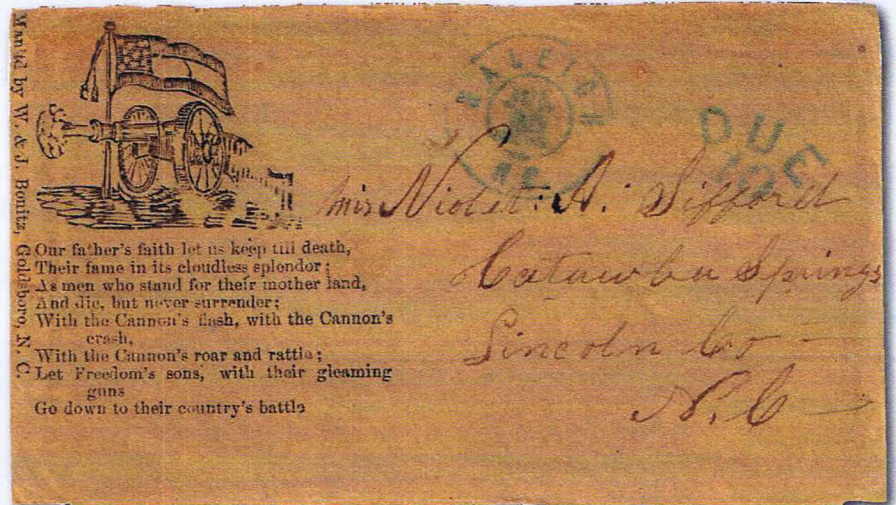 Man'fd by W. & J. Bonitz, Goldsboro, N. C.
Our father's faith let us keep till death,
Their fame in its cloudless splendor;
As men who stand for their mother land,
And die, but never surrender;
With the Cannon's flash, with the Cannon's
crash,
With the Cannon's roar and rattle;
Let Freedom's sons, with their gleaming
guns
Go down to their country's battle
RALEIGH
N.C.
DUE
10
Miss Violet: A. Sifford
Catawba Springs
Lincoln Co
N. C